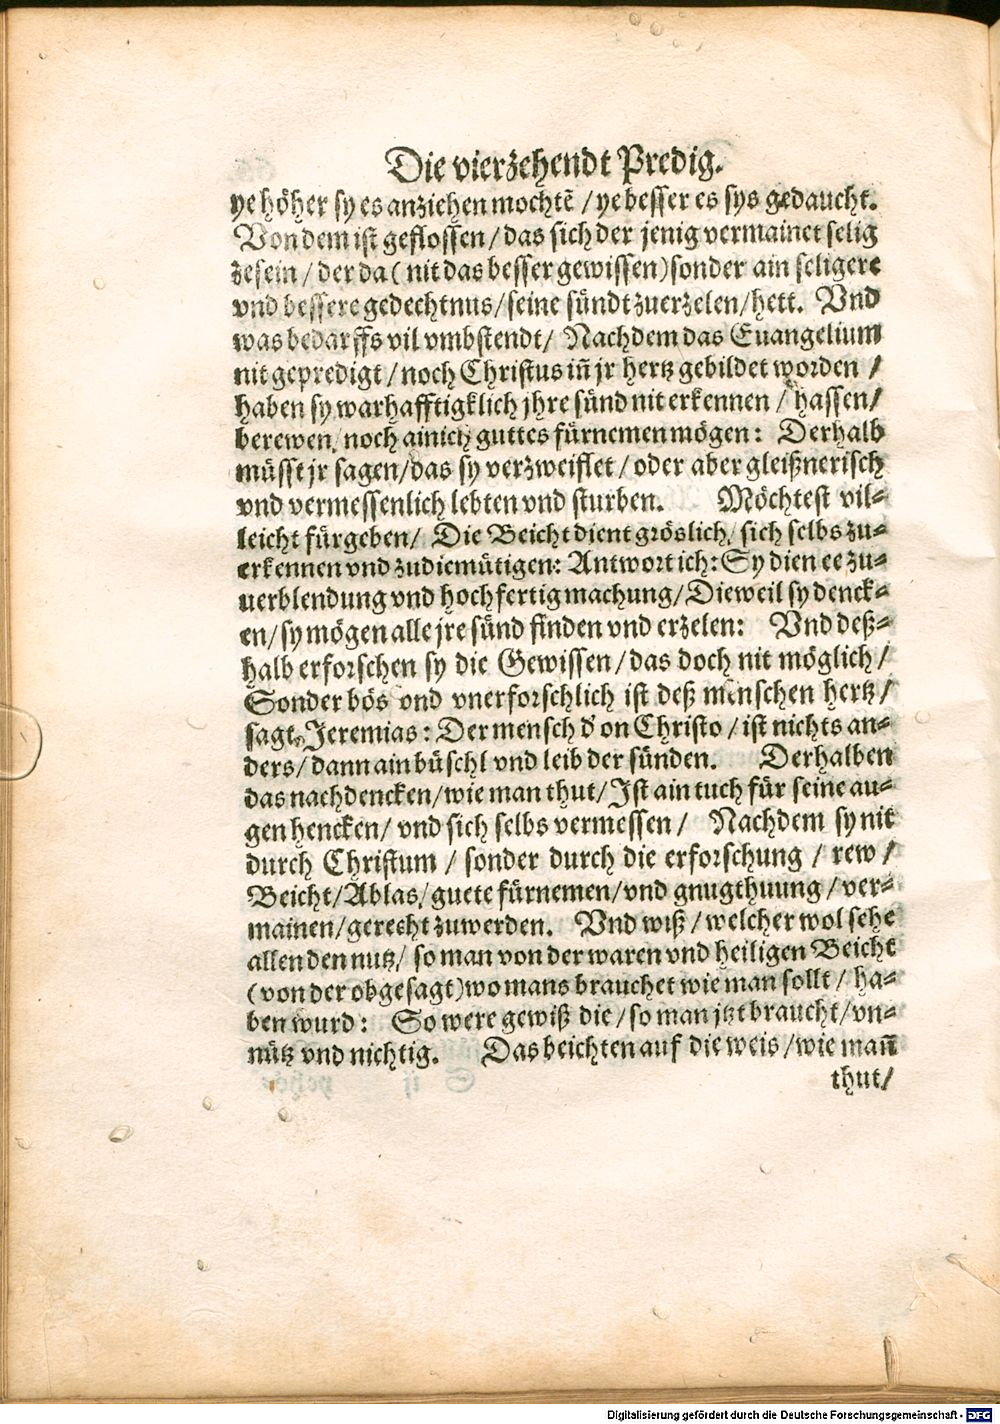 Die vierzehendt Predig.
ye höher sy es anziehen mochtē / ye besser es sys gedaucht.
Von dem ist geflossen / das sich der jenig vermainet selig
zesein / der da ( nit das besser gewissen ) sonder ain seligere
vnd bessere gedechtnus / seine sündt zuerzelen / hett. Vnd
was bedarffs vil vmbstendt / Nachdem das Euangelium
nit gepredigt / noch Christus iñ jr hertz gebildet worden /
haben sy warhafftigklich jhre sünd nit erkennen / hassen /
berewen / noch ainich guttes fürnemen mögen : Derhalb
müsst jr sagen / das sy verzweiflet / oder aber gleißnerisch
vnd vermessenlich lebten vnd sturben. Möchtest vil=
leicht fürgeben / Die Beicht dient gröslich / sich selbs zu=
erkennen vnd zudiemütigen : Antwort ich : Sy dien ee zu=
uerblendung vnd hochfertigmachung / Dieweil sy denck=
en / sy mögen alle jre sünd finden vnd erzelen : Vnd deß=
halb erforschen sy die Gewissen / das doch nit möglich /
Sonder bös vnd vnerforschlich ist deß menschen hertz /
sagt Jeremias : Der mensch dʼ on Christo / ist nichts an=
ders / dann ain büschl vnd leib der sünden. Derhalben
das nachdencken / wie man thut / Ist ain tuch für seine au=
gen hencken / vnd sich selbs vermessen / Nachdem sy nit
durch Christum / sonder durch die erforschung / rew /
Beicht / Ablas / guete fürnemen / vnd gnugthuung / ver=
mainen / gerecht zuwerden. Vnd wiß / welcher wol sehe
allen den nutz / so man von der waren vnd heiligen Beicht
( von der obgesagt ) wo mans brauchet wie man sollt / ha=
ben wurd : So were gewiß die / so man jtzt braucht / vn=
nütz vnd nichtig. Das beichten auf die weis / wie mañ
thut /
Digitalisierung gefördert durch die Deutsche Forschungsgemeinschaft - DFG